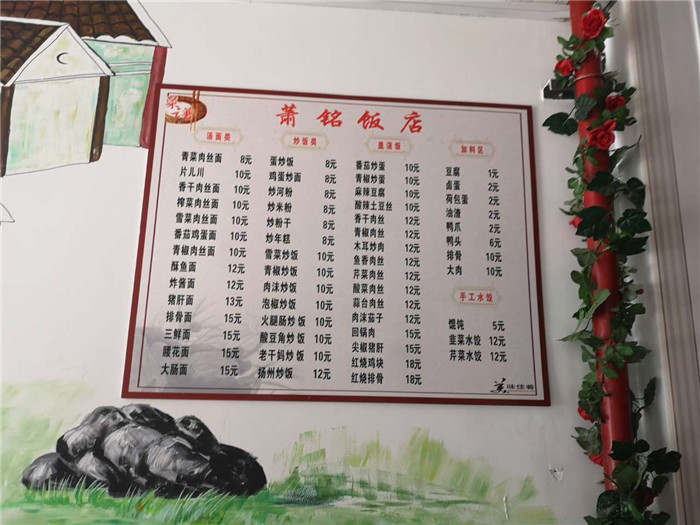 萧铭饭店
汤面类
青菜肉丝面 8元
片儿川 10元
香干肉丝面 10元
榨菜肉丝面 10元
雪菜肉丝面 10元
番茄鸡蛋面 10元
青椒肉丝面 10元
酥鱼面 12元
炸酱面 12元
猪肝面 13元
排骨面 15元
三鲜面 15元
腰花面 15元
大肠面 15元
炒饭类
蛋炒饭 8元
鸡蛋炒面 8元
炒河粉 8元
炒米粉 8元
炒粉干 8元
炒年糕 8元
雪菜炒饭 10元
青椒炒饭 10元
肉沫炒饭 10元
泡椒炒饭 10元
火腿肠炒饭 10元
酸豆角炒饭 10元
老干妈炒饭 10元
扬州炒饭 12元
盖浇饭
番茄炒蛋 10元
青椒炒蛋 10元
麻辣豆腐 10元
酸辣土豆丝 10元
香干肉丝 12元
青椒肉丝 12元
木耳炒肉 12元
鱼香肉丝 12元
芹菜肉丝 12元
酸菜肉丝 12元
蒜台肉丝 12元
肉沫茄子 12元
回锅肉 15元
尖椒猪肝 15元
红烧鸡块 18元
红烧排骨 18元
加料区
豆腐 1元
卤蛋 2元
荷包蛋 2元
油渣 2元
鸭爪 2元
鸭头 6元
排骨 10元
大肉 10元
手工水饺
馄饨 5元
韭菜水饺 12元
芹菜水饺 12元
美味佳肴